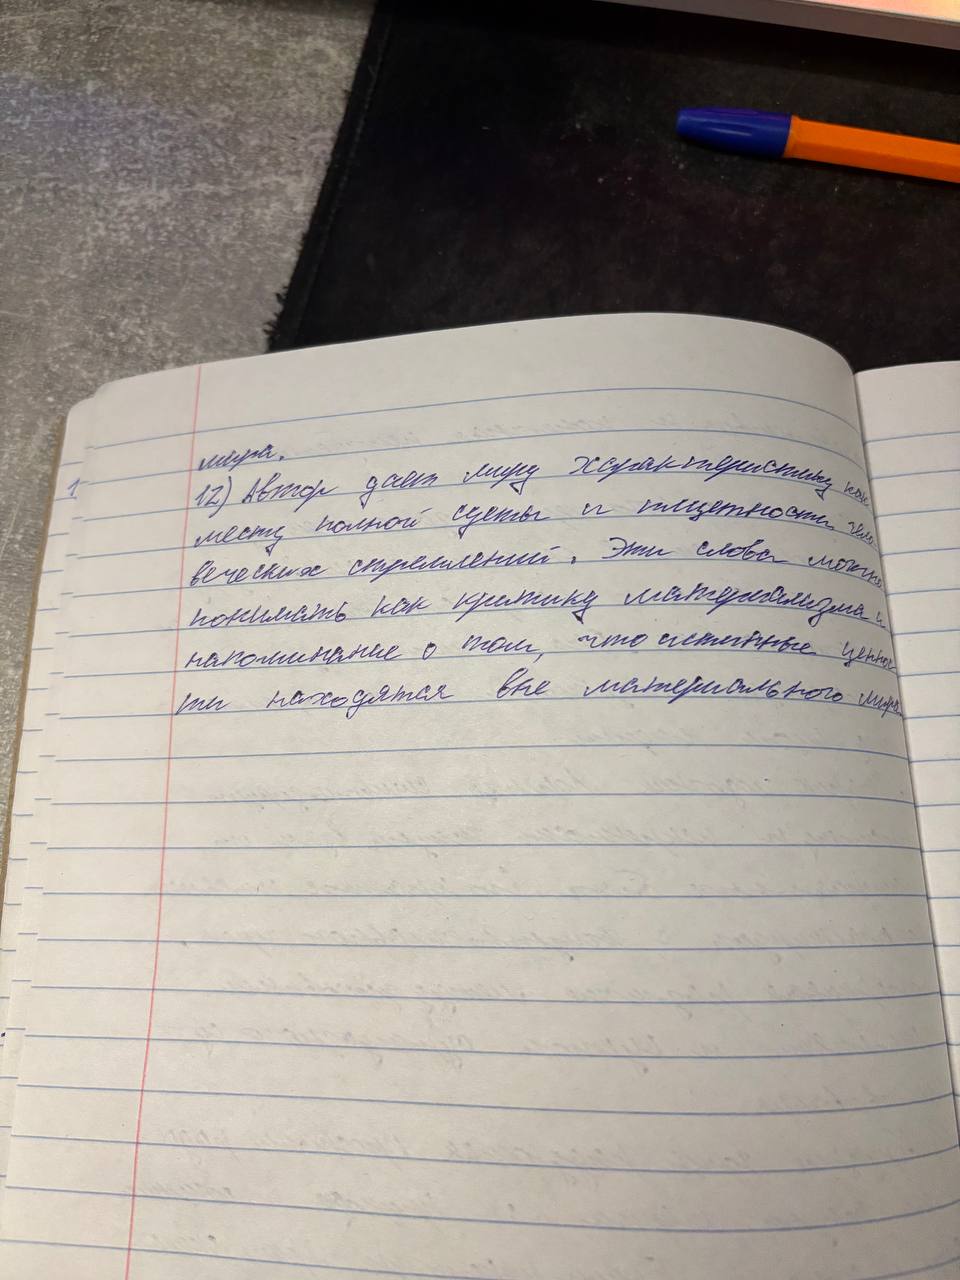 мира.
12) Автор дает миру характеристику как
месту полной суеты и тщетности чело
веческих стремлений. Эти слова можно
понимать как критику материализма и
напоминание о том, что истинные ценнос
ти находятся вне материального мира.